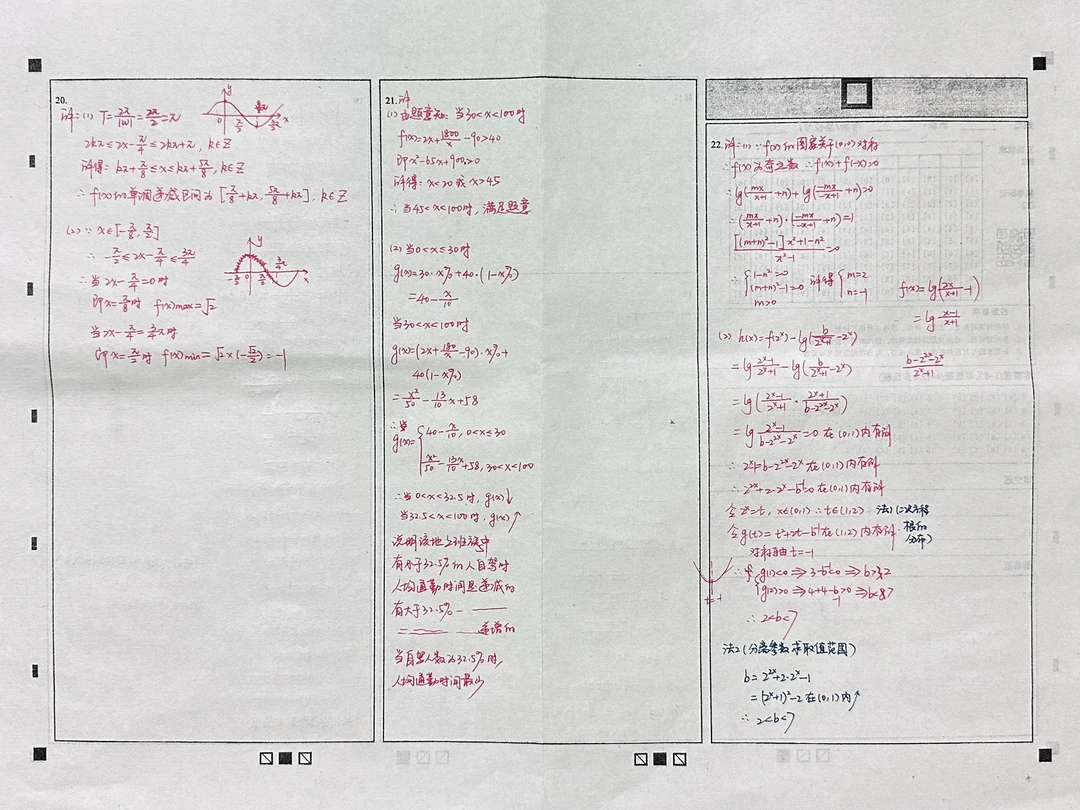 20.
解:(1) T=2π/|W|=2π/2=π
2kπ≤2x-π/4≤2kπ+π, k∈Z
解得: kπ+π/8≤x≤kπ+5π/8, k∈Z
∴f(x)的单调递减区间为[π/8+kπ, 5π/8+kπ], k∈Z
(2) ∵x∈[-π/8, π/2]
∴-π/2≤2x-π/4≤3π/4
∴当2x-π/4=0时
即x=π/8时 f(x)max=√2
当2x-π/4=3/4π时
即x=π/2时 f(x)min=√2×(-√2/2)=-1
21.解
(1)由题意知:当30<x<100时
f(x)=2x+1800/x-90>40
即x²-65x+900>0
解得: x<20或x>45
∴当45<x<100时,满足题意
(2)当0<x≤30时
g(x)=30·x%+40·(1-x%)
=40-x/10
当30<x<100时
g(x)=(2x+180/x-90)·x%+
40(1-x%)
=x²/50-13/10x+58
∴当
g(x)={40-x/10, 0<x≤30
x²/50-13x/10+58, 30<x<100
∴当0<x<32.5时, g(x)↓
当32.5<x<100时, g(x)↑
说明该地上班族中
有小于32.5%的人自驾时
人均通勤时间是递减的
有大于32.5%- ——
递增的
当自驾人数为32.5%时,
人均通勤时间最少
22.解:(1)∵f(x)的图象关于(0,0)对称
∴f(x)为奇函数 ∴f(x)+f(-x)=0
∴lg(mx/x+1+n)+lg(-mx/-x+1+n)=0
∴(mx/x+1+n)·(-mx/-x+1+n)=1
[(m+n)²-1]x²+1-n²/x²-1=0
∴{1-n²=0
(m+n)²-1=0
m>0
解得{m=2
n=-1
f(x)=lg(2x/x+1-1)
=lg x-1/x+1
(2) h(x)=f(2ˣ)-lg(b/2ˣ+1-2ˣ)
=lg2ˣ-1/2ˣ+1-lg(b/2ˣ+1-2ˣ)
b-2²ˣ-2ˣ/2ˣ+1
=lg(2ˣ-1/2ˣ+1·2ˣ+1/b-2²ˣ-2ˣ)
=lg 2ˣ-1/b-2²ˣ-2ˣ=0在(0,1)内有解
∴2ˣ-1=b-2²ˣ-2ˣ在(0,1)内有解
∴2²ˣ+2·2ˣ-b-1=0在(0,1)内有解
令2ˣ=t, x∈(0,1) ∴t∈(1,2) 法1(二次方程
根的
分布)
令g(t)=t²+2t-b-1在(1,2)内有解
对称轴t=-1
t=-1
∴{g(1)<0⇒3-b-1<0⇒b>2
g(2)>0⇒4+4-b-1>0⇒b<7
∴2<b<7
法2(分离参数求取值范围)
b=2²ˣ+2·2ˣ-1
=(2ˣ+1)²-2在(0,1)内↑
∴2<b<7